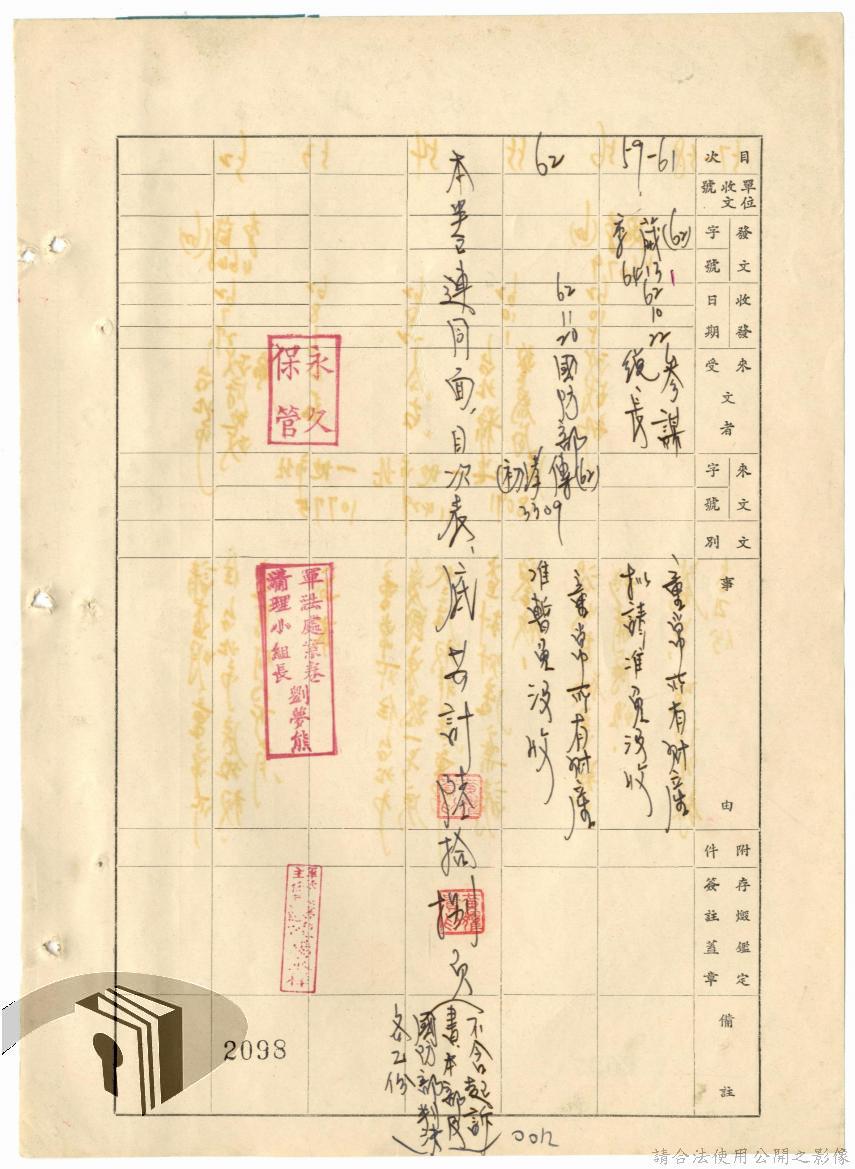 目次
單位收文號
發文字號
收發日期
來受文者
來文字號
文別
事由
附件
存燬鑑定簽註蓋章
備註
59-61
(62)
6413
62 10 22
參謀總長
童常所有財產
擬請准免沒收
62
62 11 20
國防部
(62)
3309
童常所有財產
准暫免沒收
本卷連同面、目次表、底共計陸拾捌頁
(不含起訴書、本部及國防部判決各乙份)
永久保管
軍法處案卷清理小組長 劉夢熊
2098
請合法使用公開之影像